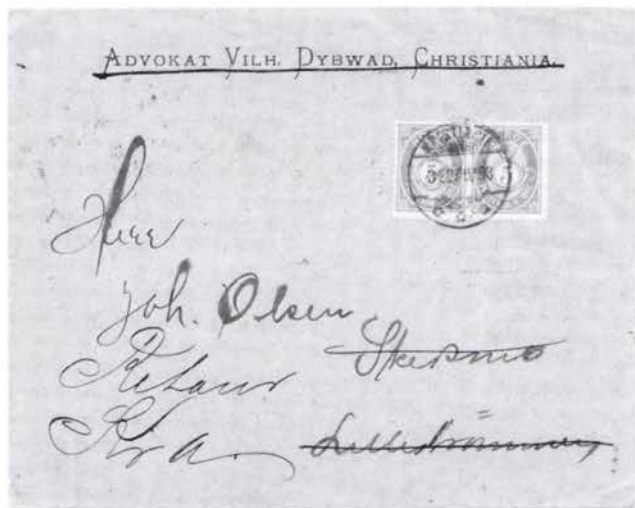 ADVOKAT VILH. DYBWAD, CHRISTIANIA.
Herr
Joh. Olsen
Retour Skedsmo
Kra. Lillestrømmen